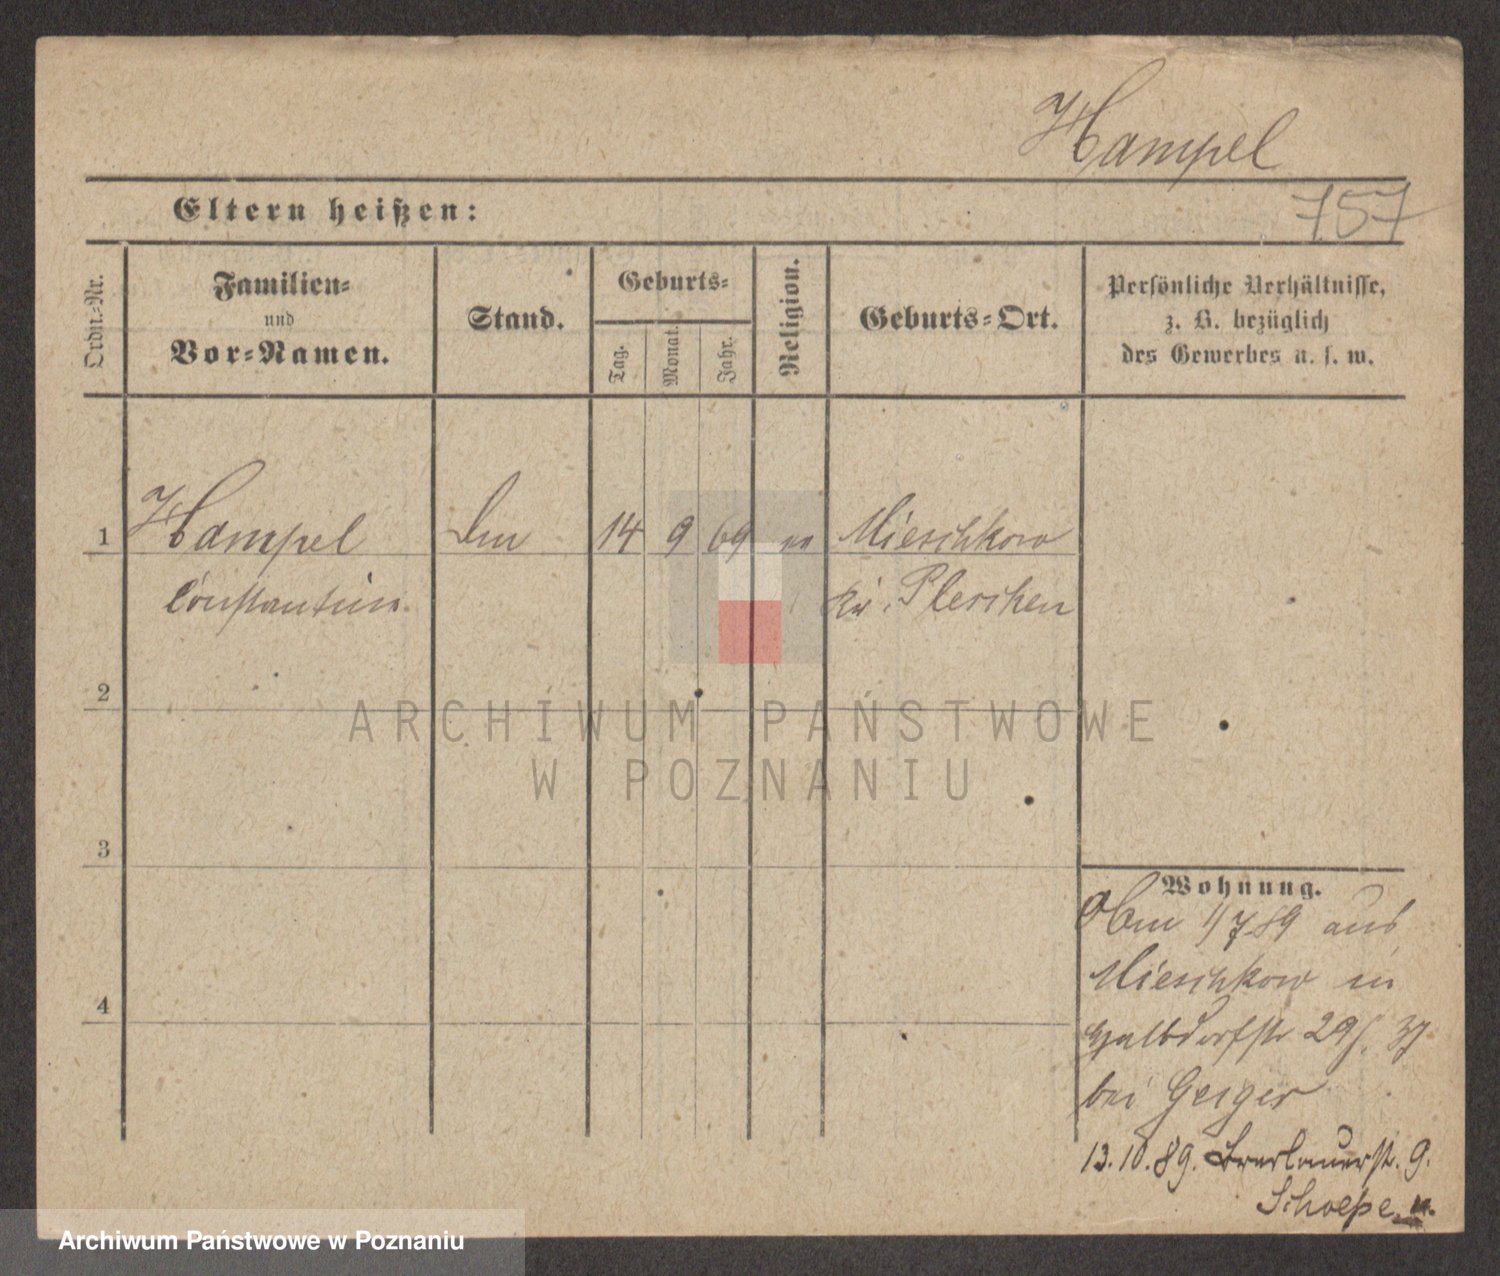 Hampel
757
Eltern heißen:
Ordn.-Nr.
Familien-
und
Vor-Namen.
Stand.
Geburts-
Tag.
Monat.
Jahr.
Religion.
Geburts-Ort.
Persönliche Verhältnisse,
z. B. bezüglich
des Gewerbes u. s. w.
1
Hampel
14
9
69
Mieschkow
Constantin
Kr. Pleschen
2
ARCHIWUM PAŃSTWOWE
W POZNANIU
3
4
Wohnung.
1/7 89 aus
Mieschkow in
Halbdorfstr 29
bei Geiger
13.10.89. Breslauerstr. 9.
Schoepe
Archiwum Państwowe w Poznaniu